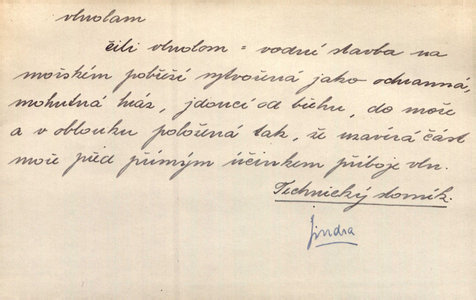 vlnolam
čili vlnolom = vodní stavba na
mořském pobřeží vytvořená jako ochranna,
mohutná hráz, jdoucí od břehu, do moře
a v oblouku položená tak, že uzavírá část
moře před přímým účinkem příboje vln.
Technický slovník.
Jindra